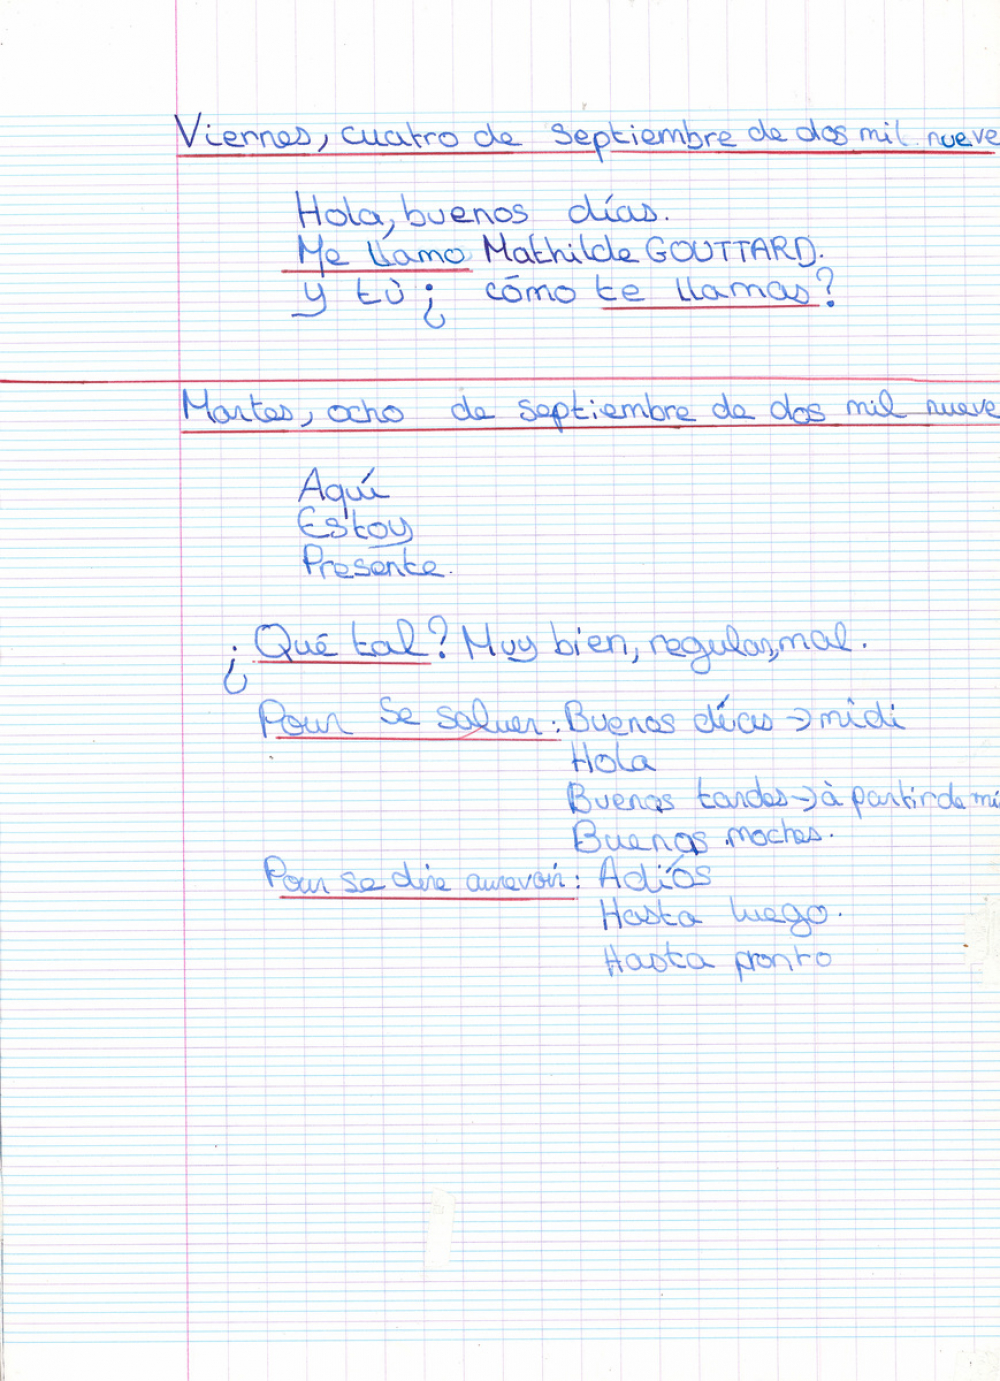 Viernes, cuatro de septiembre de dos mil nueve
Hola, buenos días.
Me llamo Mathilde GOUTTARD.
y tù ¿ cómo te llamas?
Martes, ocho de septiembre de dos mil nueve
Aquí
Estoy
Presente.
¿Qué tal? Muy bien, regular, mal.
Pour se saluer: Buenos días → midi
Hola
Buenas tardes → à partir de mi
Buenas noches.
Pour se dire aurevoir: Adiós
Hasta luego.
Hasta pronto